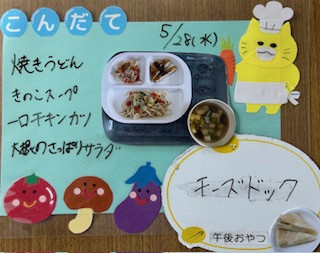 こんだて
5/28(水)
焼きうどん
きのこスープ
一口チキンカツ
大根のさっぱりサラダ
チーズドック
午後おやつ